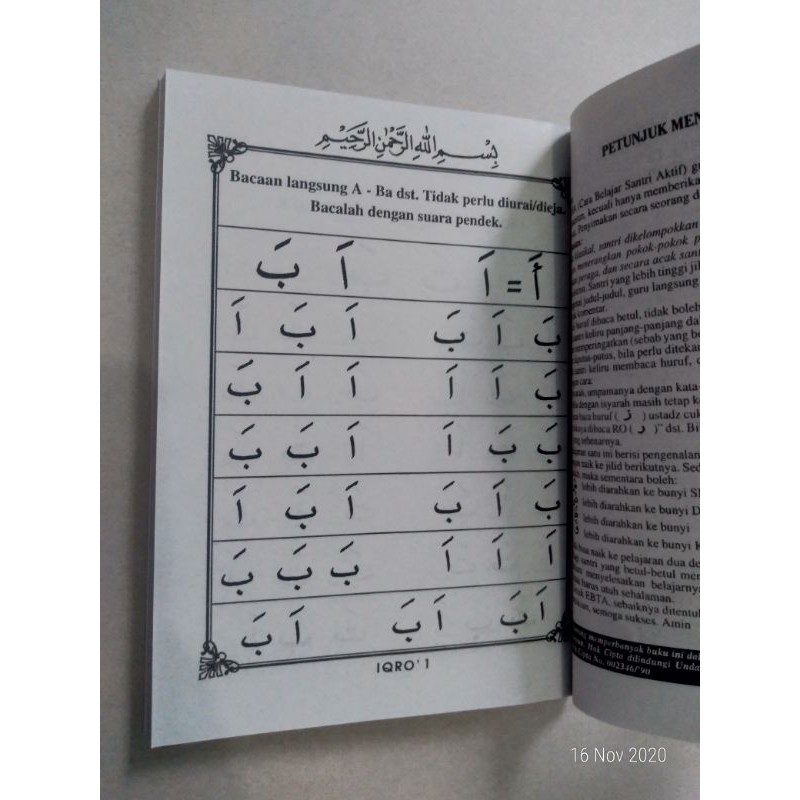 بِسْمِ اللهِ الرَّحْمٰنِ الرَّحِيْمِ
Bacaan langsung A - Ba dst. Tidak perlu diurai/dieja.
Bacalah dengan suara pendek.
أَ = اَ اَ بَ
بَ اَ بَ اَ بَ اَ
بَ اَ اَ اَ اَ بَ
بَ بَ اَ اَ بَ بَ
بَ اَ بَ اَ بَ اَ
اَ اَ اَ بَ بَ بَ
اَ بَ اَ بَ اَ بَ
IQRO' 1
PETUNJUK MEN
(Cara Belajar Santri Aktif) gu
kecuali hanya memberika
Penyimakan secara seorang d
santri dikelompokkan
menerangkan pokok-pokok p
peraga, dan secara acak san
Santri yang lebih tinggi jil
judul-judul, guru langsung
komentar.
huruf dibaca betul, tidak boleh
keliru panjang-panjang da
memperingatkan (sebab yang be
bila perlu ditekan
keliru membaca huruf, c
cara:
ampamanya dengan kata-
dengan isyarah masih tetap k
baca huruf ( زَ ) ustadz cuk
dibaca RO ( رَ )" dst. Bi
sebenarnya.
satu ini berisi pengenalan
naik ke jilid berikutnya. Sed
maka sementara boleh:
lebih diarahkan ke bunyi S
lebih diarahkan ke bunyi D
lebih diarahkan ke bunyi
lebih diarahkan ke bunyi K
naik ke pelajaran dua d
santri yang betul-betul me
menyelesaikan belajarny
harus utuh sehalaman.
EBTA, sebaiknya ditentu
semoga sukses. Amin
memperbanyak buku ini da
Hak Cipta dilindungi Unda
No. 002346/'90
16 Nov 2020